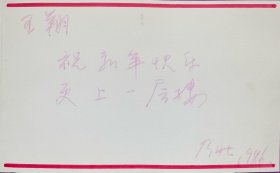 王翔
祝新年快乐
更上一层楼
1986